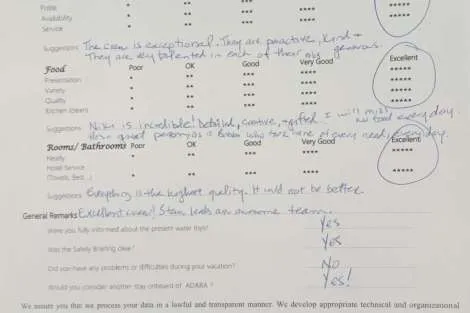 Polite * ** *****
Availability * ** *** **** *****
Service * ** *** **** *****
Suggestions The crew is exceptional. They are proactive, kind +
They are talented in each of their jobs generous.
Food Poor OK Good Very Good Excellent
Presentation * ** *** **** *****
Variety * ** *** **** *****
Quality * ** *** **** *****
Kitchen * ** *** **** *****
Suggestions Niki is incredible! Detailed, creative, + gifted I will miss
good food every day.
who take care of every need, every day.
Rooms/ Bathrooms Poor OK Good Very Good Excellent
Neatly * ** *** **** *****
Hotel Service
(Towels, Bed...) * ** *** **** *****
Suggestions Everything is the highest quality. It could not be better.
General Remarks Excellent crew! leads an awesome team.
Were you fully informed about the present water toys? Yes
Was the Safety Briefing clear? Yes
Did you have any problems or difficulties during your vacation? No
Would you consider another stay onboard of ADARA ? Yes!
We assure you that we process your data in a lawful and transparent manner. We develop appropriate technical and organizational